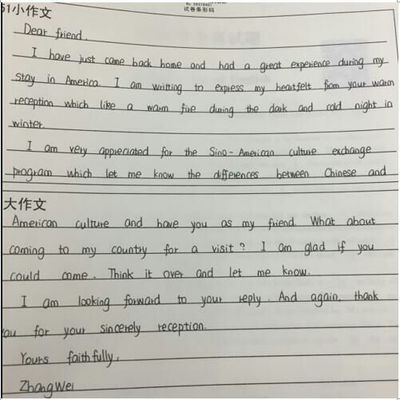 51小作文
试卷条形码
Dear friend,
I have just come back home and had a great experience during my
stay in America. I am writing to express my heatfelt from your warm
reception which like a warm fire during the dark and cold night in
winter.
I am very appreciated for the Sino-American culture exchange
program which let me know the differences between Chinese and
大作文
American culture and have you as my friend. What about
coming to my country for a visit? I am glad if you
could come. Think it over and let me know.
I am looking forward to your reply. And again, thank
you for your sincerely reception.
Yours faithfully,
Zhang Wei